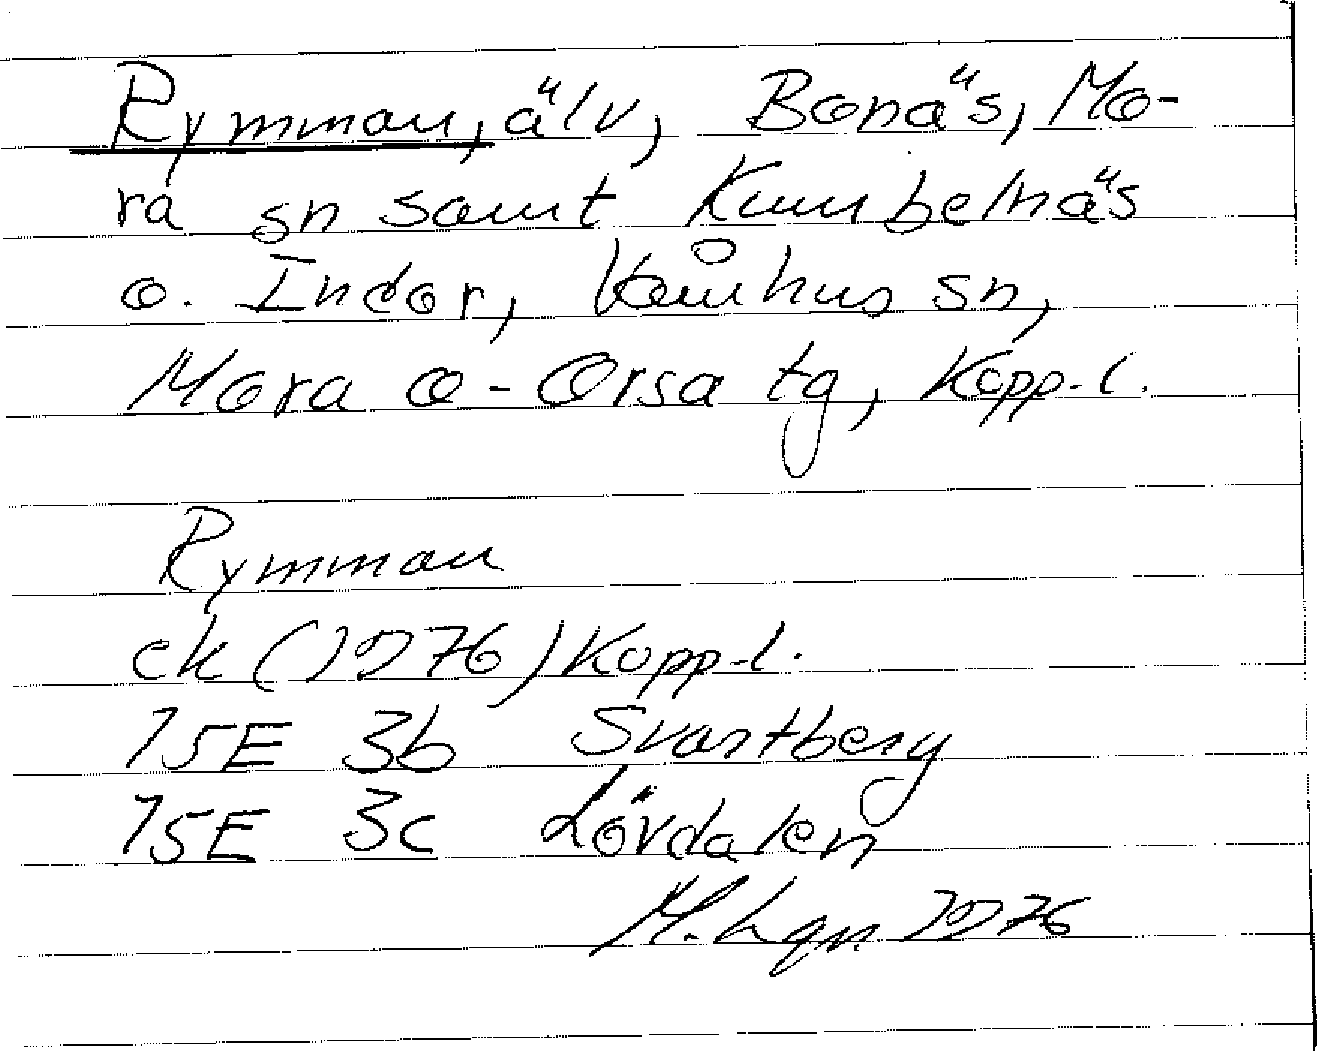 Rymman, älv, Bonäs, Mo-
ra sn samt Kumbelnäs
o. Indor, Våmhus sn,
Mora o. Orsa tg, Kopp-l.
Rymman
ek (1976) Kopp-l.
15E 3b Svartberg
15E 3c Lövdalen
M. Lgn. 1976